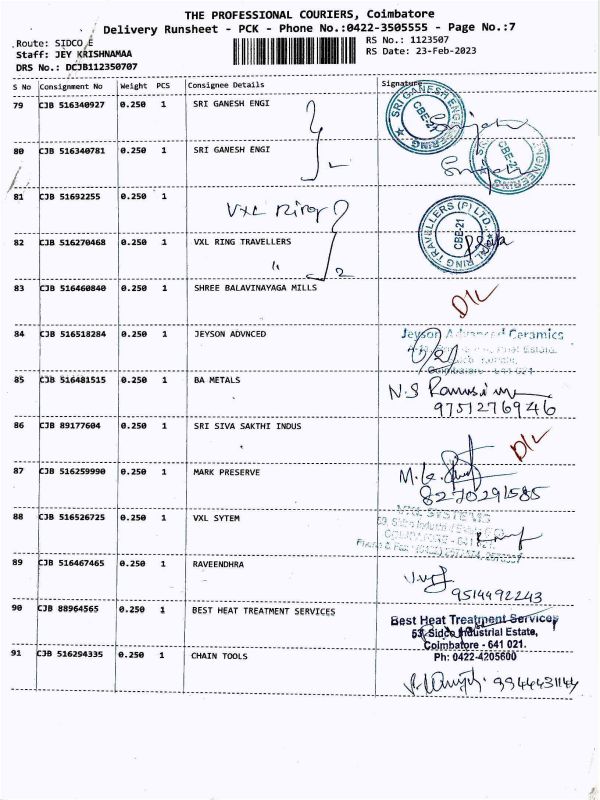 THE PROFESSIONAL COURIERS, Coimbatore
Delivery Runsheet - PCK - Phone No.:0422-3505555 - Page No.:7
Route: SIDCO E
RS No.: 1123507
Staff: JEY KRISHNAMAA
RS Date: 23-Feb-2023
DRS No.: DCJB112350707
S No Consignment No Weight PCS Consignee Details Signature
79 CJB 516340927 0.250 1 SRI GANESH ENGI
SRI GANESH ENGINEERING
CBE-21
80 CJB 516340781 0.250 1 SRI GANESH ENGI
ENGINEERING
CBE-21
81 CJB 51692255 0.250 1
VXL Ring
VXL RING TRAVELLERS (P) LTD.
CBE-21
82 CJB 516270468 0.250 1 VXL RING TRAVELLERS
" 2
83 CJB 516460840 0.250 1 SHREE BALAVINAYAGA MILLS
D/L
84 CJB 516518284 0.250 1 JEYSON ADVNCED
Jeyson Advanced Ceramics
Coimbatore - 641 021
85 CJB 516481515 0.250 1 BA METALS
N.S
9751276946
86 CJB 89177604 0.250 1 SRI SIVA SAKTHI INDUS
D/L
87 CJB 516259990 0.250 1 MARK PRESERVE
8270291585
88 CJB 516526725 0.250 1 VXL SYTEM
VXL SYSTEMS
COIMBATORE - 641 021.
89 CJB 516467465 0.250 1 RAVEENDHRA
9514492243
90 CJB 88964565 0.250 1 BEST HEAT TREATMENT SERVICES
Best Heat Treatment Services
53, Sidco Industrial Estate,
Coimbatore - 641 021.
Ph: 0422-4205600
91 CJB 516294335 0.250 1 CHAIN TOOLS
9944431144